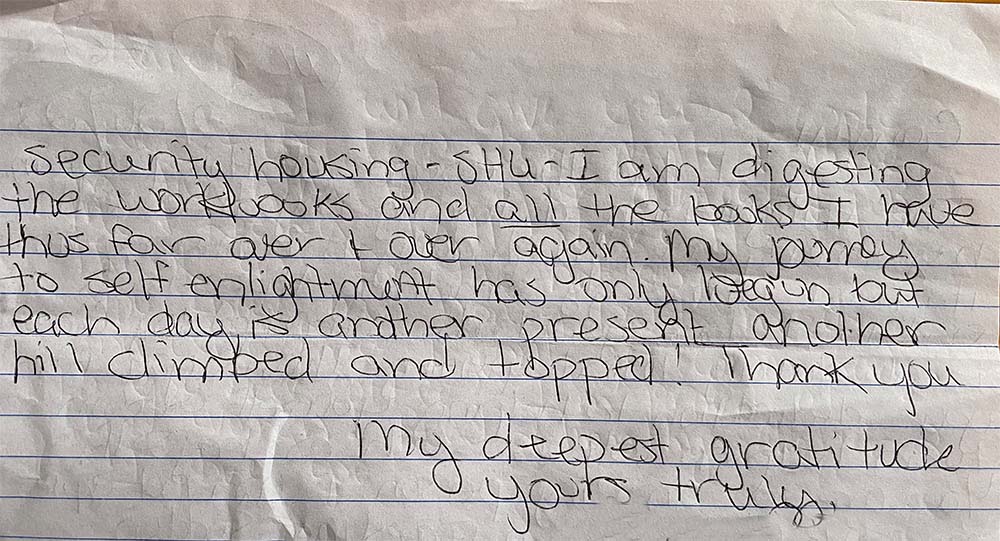 security housing - SHU - I am digesting
the workbooks and all the books I have
thus far over + over again. My jorney
to self enlightment has only begun but
each day is another present another
hill climbed and topped! Thank you
My deepest gratitude
yours truly,